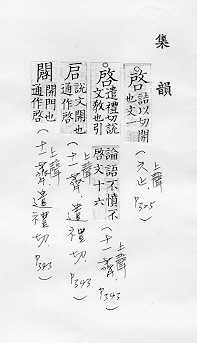 集韻
啓 詰以切開
也文一
(上聲 六止 P325)
啓 遣禮切說
文教也引
論語不憤不
啓文十六
(上聲 十一薺 P343)
启 說文開也
通作啓
(上聲 十一薺 遣禮切 P343)
開門也
通作啓
(上聲 十一薺 遣禮切 P343)